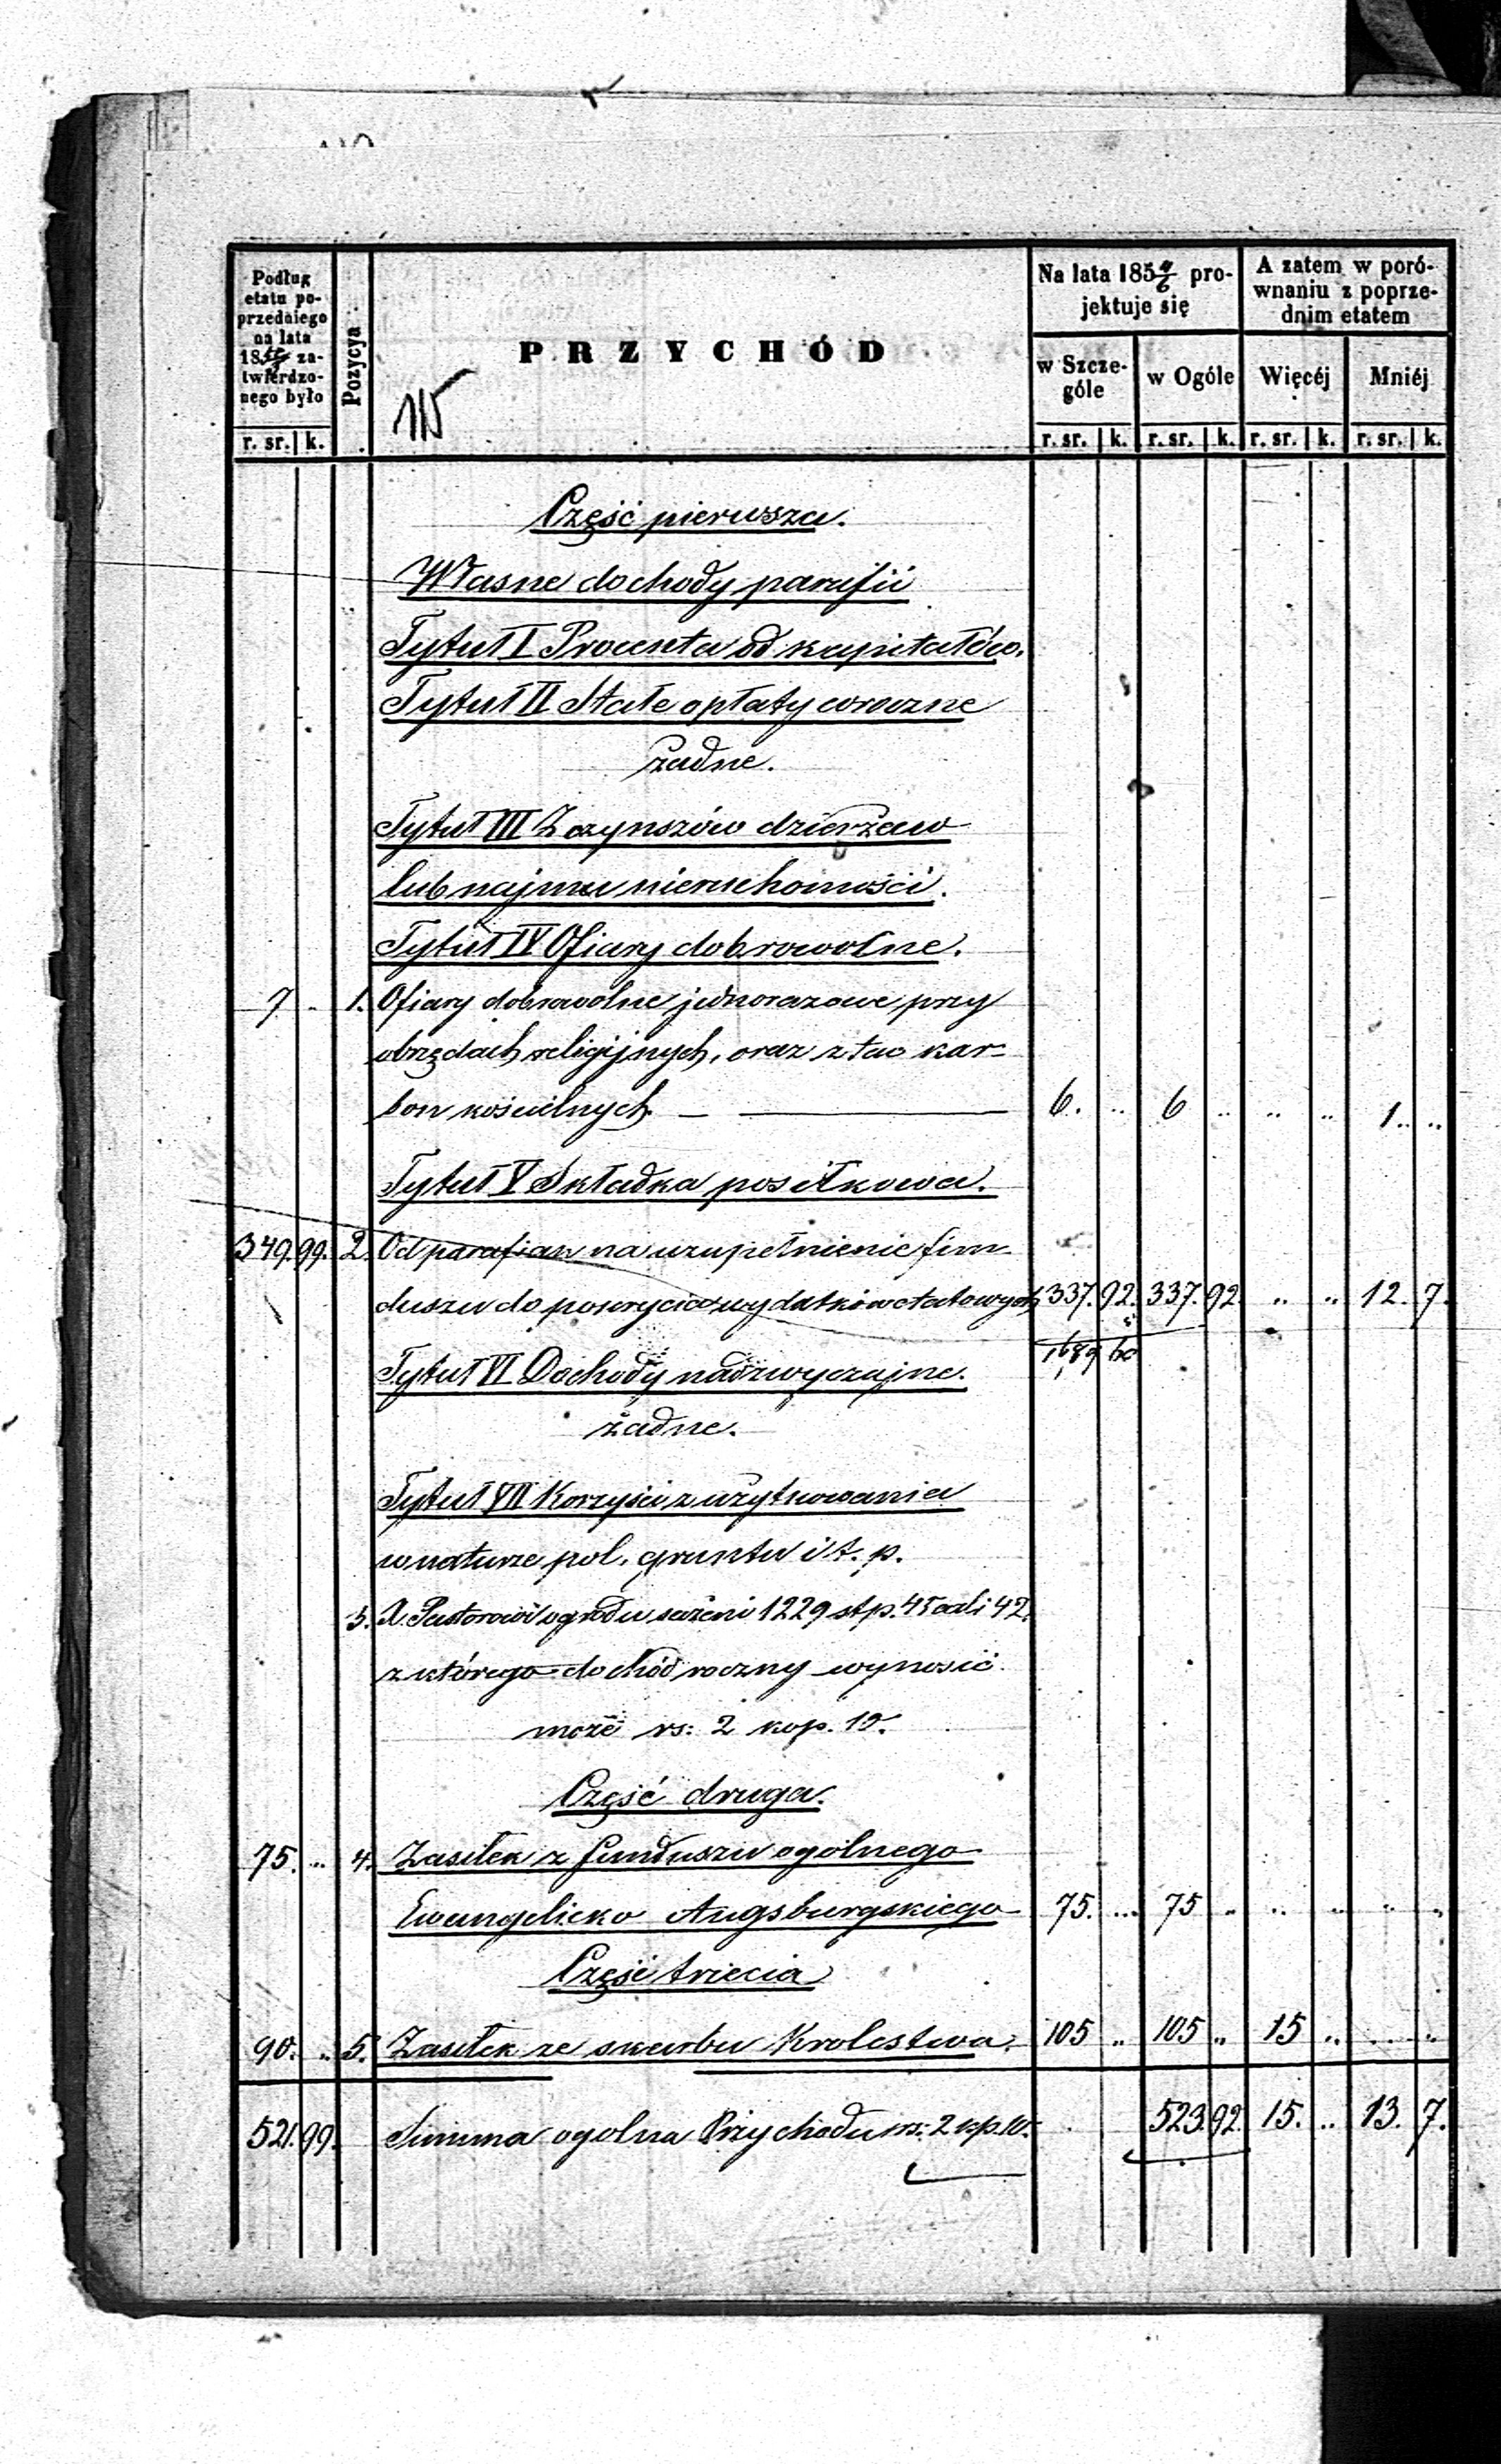 Podług etatu poprzedniego na lata 18 zatwierdzonego było
Pozycya
PRZYCHÓD
Na lata 185 9/6 projektuje się
A zatem w porównaniu z poprzednim etatem
w Szczególe
w Ogóle
Więcéj
Mniéj
r. sr. k. r. sr. k. r. sr. k. r. sr. k. r. sr. k.
115
Część pierwsza.
Własne dochody parafii
Tytuł I Procenta od kapitałów.
Tytuł II Stałe opłaty coroczne
żadne.
Tytuł III Z czynszów dzierżaw
lub najmu nieruchomości.
Tytuł IV Ofiary dobrowolne.
7 .. 1. Ofiary dobrowolne jednorazowe przy
obrzędach religijnych, oraz z tac kar-
bon kościelnych — 6. .. 6 .. .. .. 1. ..
Tytuł V Składka posiłkowa.
349. 99. 2. Od parafian na uzupełnienie fun-
duszu do pokrycia wydatków etatowych 337. 92. 337. 92. .. .. 12. 7.
1689 60
Tytuł VI Dochody nadzwyczajne.
żadne.
Tytuł VII Korzyści z użytkowania
w naturze pol. gruntu i t. p.
3. X. Pastorowi ogrodu sążeni 1229 stp. 45 cali 42.
z którego dochód roczny wynosić
może rs: 2 kop. 10.
Część druga.
75. .. 4. Zasiłek z funduszu ogólnego
Ewangelicko Augsburgskiego 75. .. 75 .. .. .. .. ..
Część trzecia
90. .. 5. Zasiłek ze skarbu Krolestwa. 105 .. 105 .. 15 .. .. ..
521. 99. Summa ogolna Przychodu rs: 2 kp. 10. 523. 92. 15. .. 13. 7.